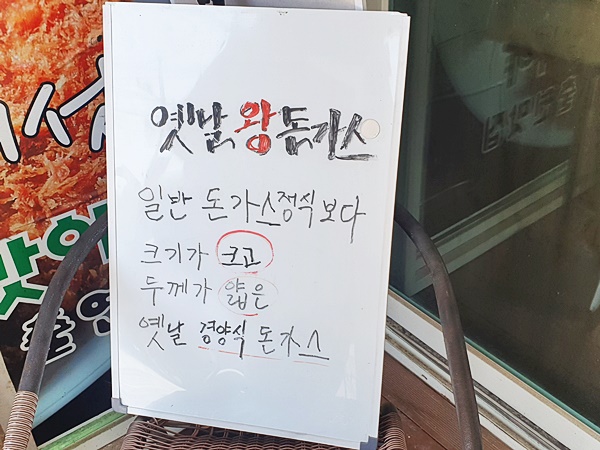 옛날 왕돈까스
일반 돈가스정식보다
크기가 크고
두께가 얇은
옛날 경양식 돈가스